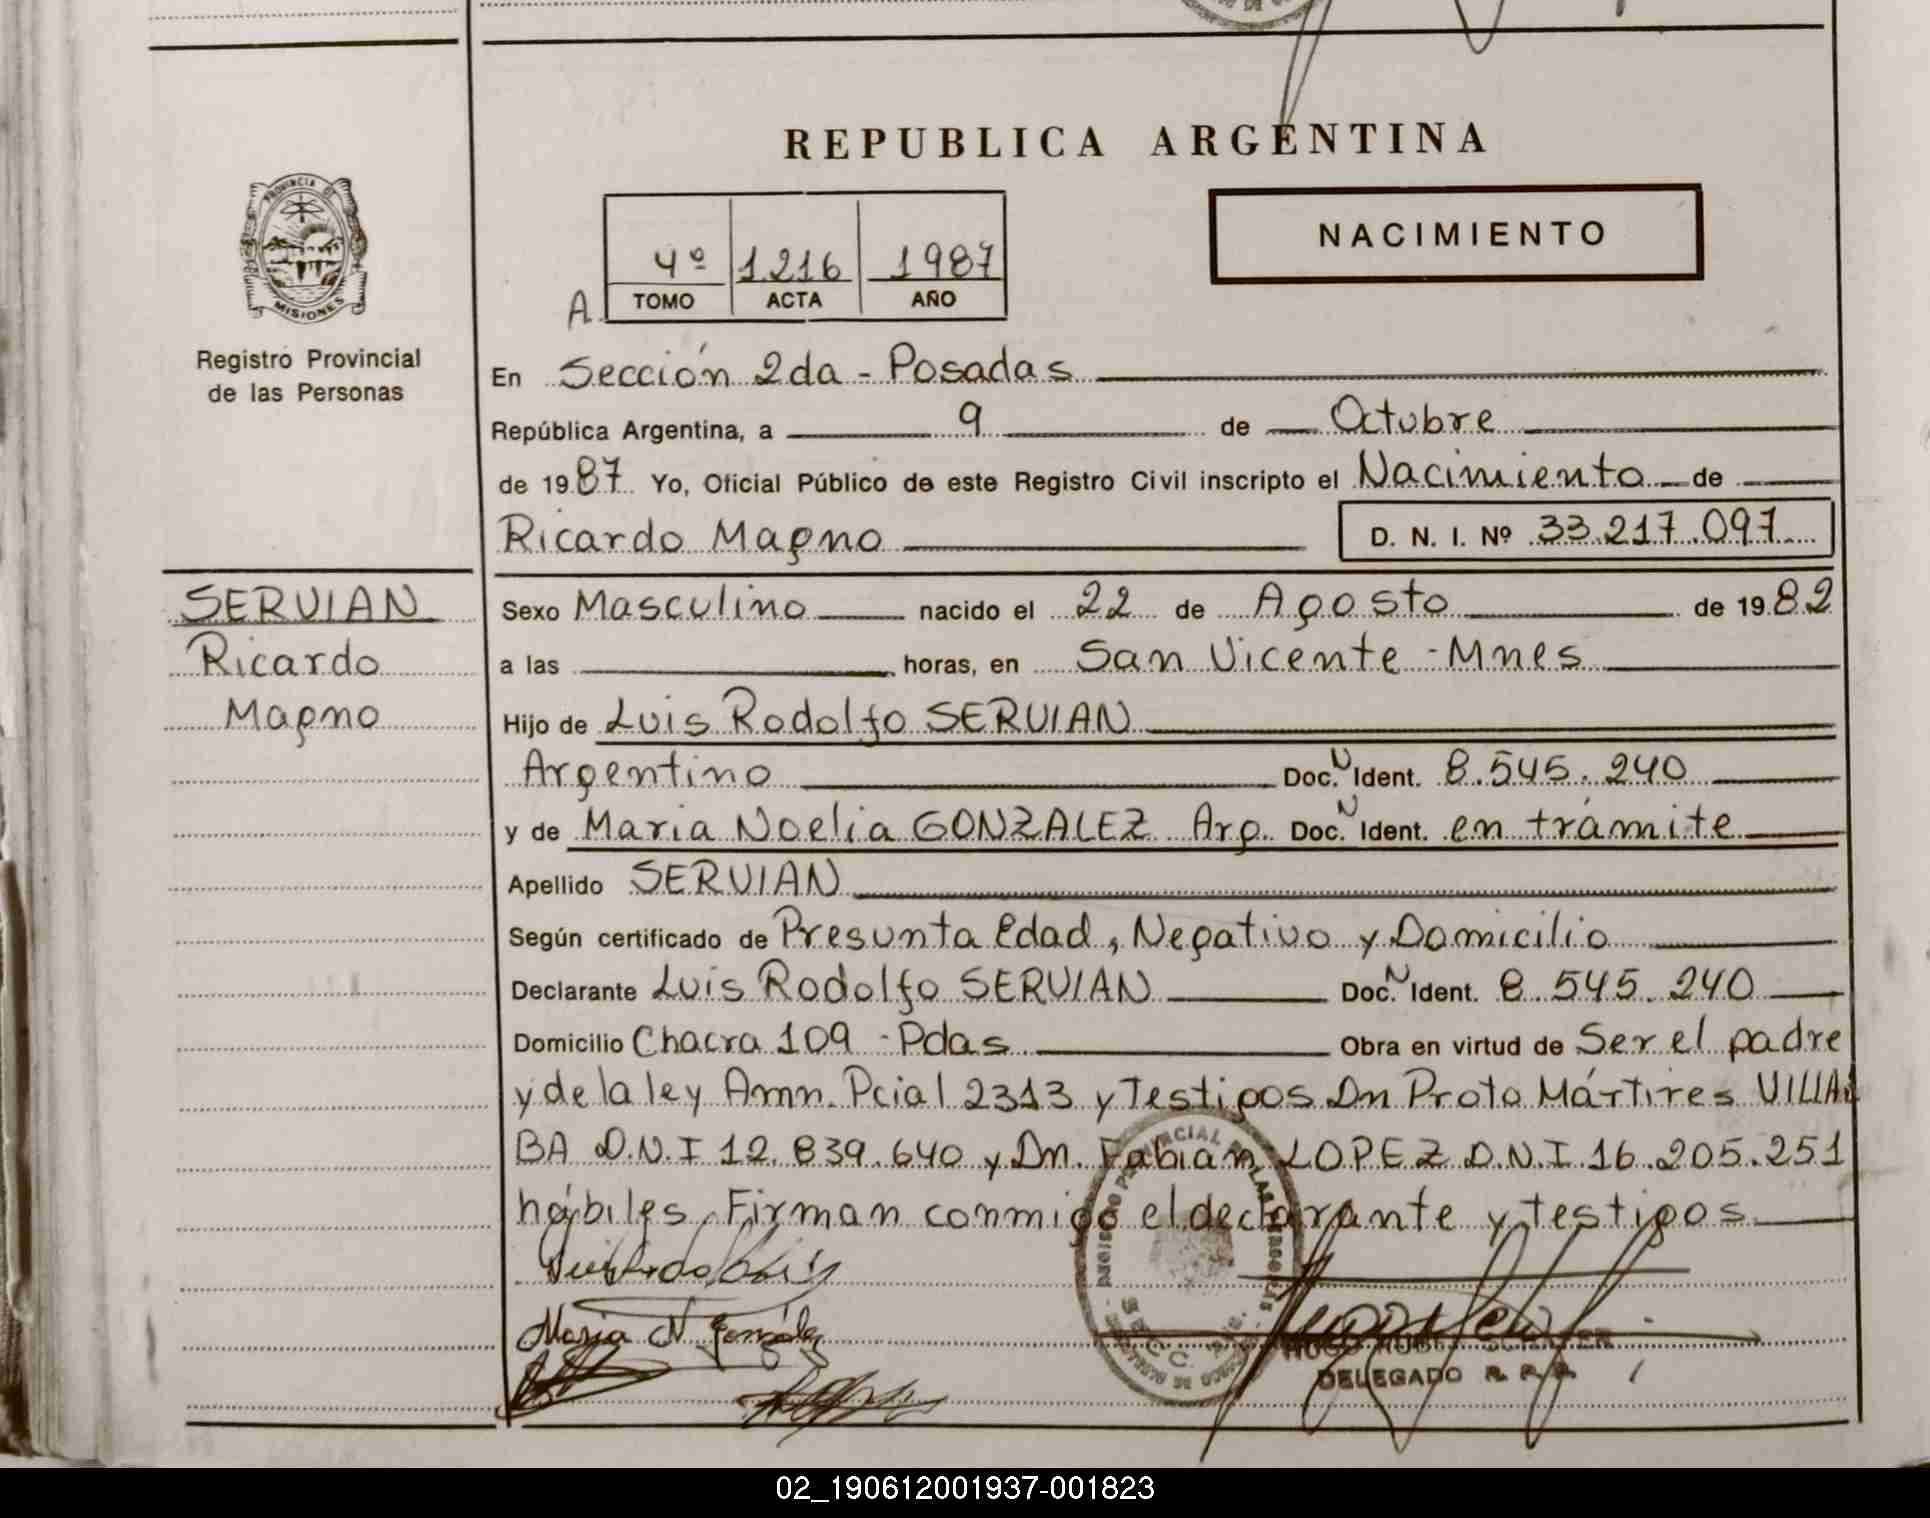 REPUBLICA ARGENTINA
NACIMIENTO
PROVINCIA DE
MISIONES
Registro Provincial
de las Personas
4º 1216 1987
A TOMO ACTA AÑO
En Sección 2da - Posadas
República Argentina, a 9 de Octubre
de 1987 Yo, Oficial Público de este Registro Civil inscripto el Nacimiento de
Ricardo Magno D. N. I. Nº 33.217.097
SERVIAN
Ricardo
Magno
Sexo Masculino nacido el 22 de Agosto de 1982
a las horas, en San Vicente - Mnes
Hijo de Luis Rodolfo SERVIAN
Argentino Doc. N Ident. 8.545.240
y de Maria Noelia GONZALEZ Arg. Doc. N Ident. en trámite
Apellido SERVIAN
Según certificado de Presunta Edad, Negativo y Domicilio
Declarante Luis Rodolfo SERVIAN Doc. N Ident. 8.545.240
Domicilio Chacra 109 - Pdas Obra en virtud de Ser el padre
y de la ley Amn. Pcial 2313 y Testigos Dn Proto Mártires VILLAL
BA D.N.I 12.839.640 y Dn. Fabián LOPEZ D.N.I. 16.205.251
hábiles, Firman conmigo el declarante y testigos
Maria N. González
DELEGADO R. P. P.
02_190612001937-001823